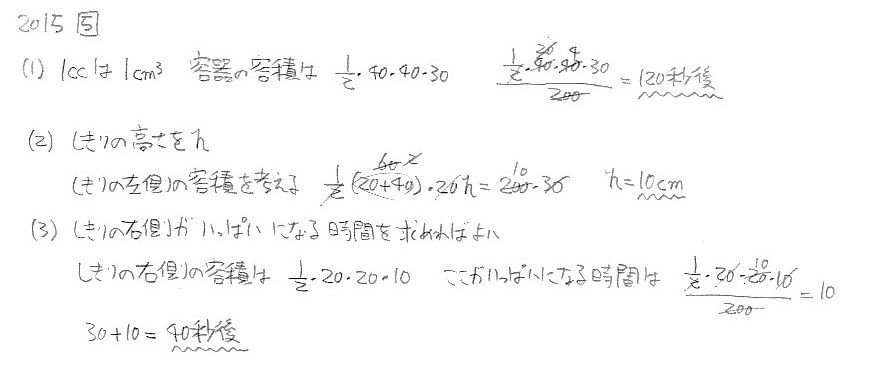 2015 5
(1) 1ccは1cm³ 容器の容積は 1/2・40・40・30 (1/2・40・40・30)/200 20 4 =120秒後
(2) しきりの高さをh
しきりの左側の容積を考える 1/2(20+40)・20h=200・30 60 2 10 h=10cm
(3) しきりの右側がいっぱいになる時間を求めればよい
しきりの右側の容積は 1/2・20・20・10 ここがいっぱいになる時間は (1/2・20・20・10)/200 10 =10
30+10=40秒後